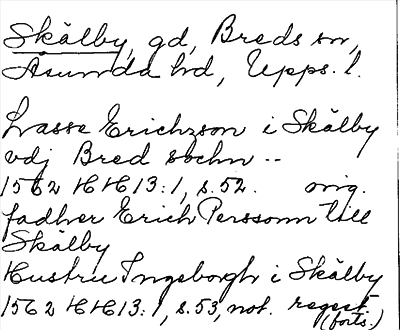 Skälby, gd, Breds sn,
Åsunda hd, Upps. l.
Lasse Erichzson i Skälby
vdj Bred sochn --
1562 HH 13:1, s. 52. orig.
fadher Erich Perssonn till
Skälby
Hustru Ingeborgh i Skälby
1562 HH 13:1, s. 53, not. regest
(forts.)